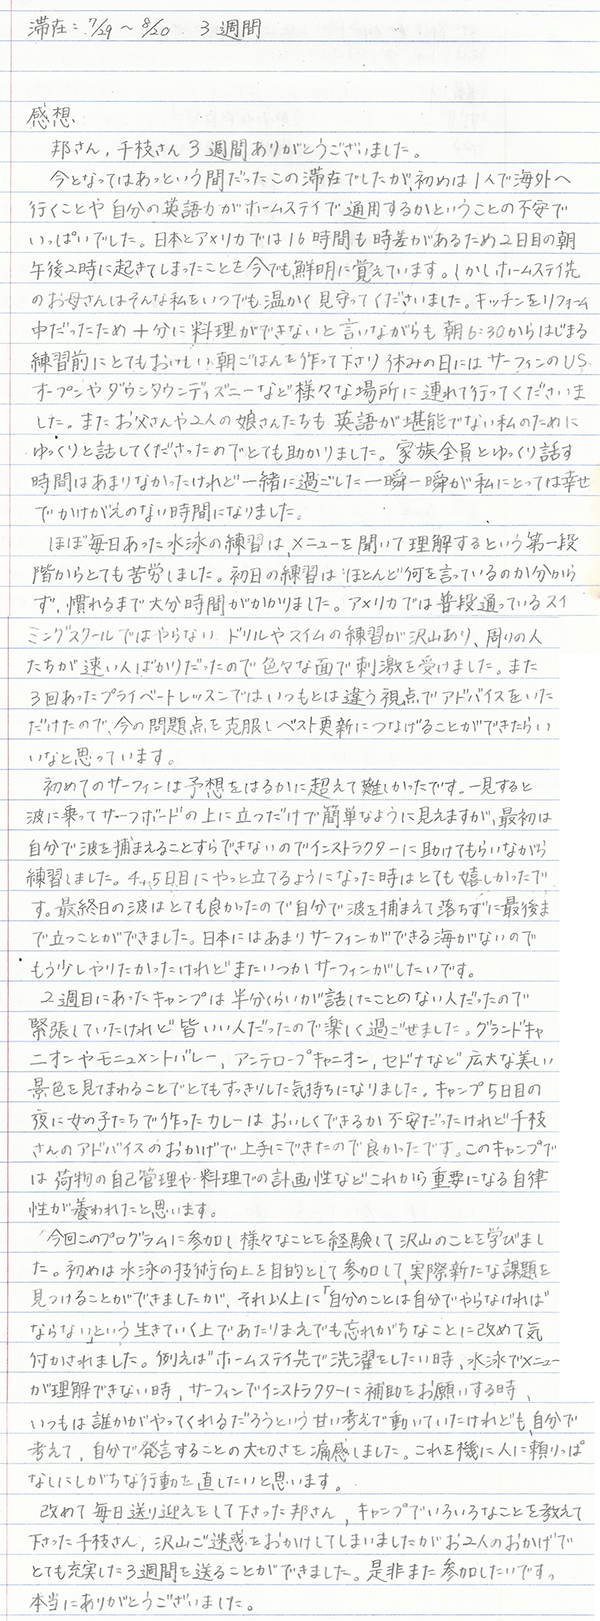 滞在：7/29～8/20　3週間
感想
邦さん，千枝さん3週間ありがとうございました。
今となってはあっという間だったこの滞在でしたが，初めは1人で海外へ
行くことや自分の英語力がホームステイで通用するかということの不安で
いっぱいでした。日本とアメリカでは16時間も時差があるため2日目の朝
午後2時に起きてしまったことを今でも鮮明に覚えています。しかしホームステイ先
のお母さんはそんな私をいつでも温かく見守ってくださいました。キッチンをリフォーム
中だったため十分に料理ができないと言いながらも朝6:30からはじまる
練習前にとてもおいしい朝ごはんを作って下さり休みの日にはサーフィンのUS
オープンやダウンタウンディズニーなど様々な場所に連れて行ってくださいま
した。またお父さんや2人の娘さんたちも英語が堪能でない私のために
ゆっくりと話してくださったのでとても助かりました。家族全員とゆっくり話す
時間はあまりなかったけれど一緒に過ごした一瞬一瞬が私にとっては幸せ
でかけがえのない時間になりました。
ほぼ毎日あった水泳の練習は，メニューを聞いて理解するという第一段
階からとても苦労しました。初日の練習はほとんど何を言っているのか分から
ず，慣れるまで大分時間がかかりました。アメリカでは普段通っているスイ
ミングスクールではやらないドリルやスイムの練習が沢山あり、周りの人
たちが速い人ばかりだったので色々な面で刺激を受けました。また
3回あったプライベートレッスンではいつもとは違う視点でアドバイスをいた
だけたので、今の問題点を克服しベスト更新につなげることができたらい
いなと思っています。
初めてのサーフィンは予想をはるかに超えて難しかったです。一見すると
波に乗ってサーフボードの上に立つだけで簡単なように見えますが，最初は
自分で波を捕まえることすらできないのでインストラクターに助けてもらいながら
練習しました。4，5日目にやっと立てるようになった時はとても嬉しかったで
す。最終日の波はとても良かったので自分で波を捕まえて落ちずに最後ま
で立つことができました。日本にはあまりサーフィンができる海がないので
もう少しやりたかったけれどまたいつかサーフィンがしたいです。
2週目にあったキャンプは半分くらいが話したことのない人だったので
緊張していたけれど皆いい人だったので楽しく過ごせました。グランドキャ
ニオンやモニュメントバレー，アンテロープキャニオン，セドナなど広大な美しい
景色を見てまわることでとてもすっきりした気持ちになりました。キャンプ5日目の
夜に女の子たちで作ったカレーはおいしくできるか不安だったけれど千枝
さんのアドバイスのおかげで上手にできたので良かったです。このキャンプで
は荷物の自己管理や料理での計画性などこれから重要になる自律
性が養われたと思います。
今回このプログラムに参加し様々なことを経験して沢山のことを学びまし
た。初めは水泳の技術向上を目的として参加して，実際新たな課題を
見つけることができましたが，それ以上に「自分のことは自分でやらなければ
ならない」という生きていく上であたりまえでも忘れがちなことに改めて気
付かされました。例えばホームステイ先で洗濯をしたい時，水泳でメニュー
が理解できない時，サーフィンでインストラクターに補助をお願いする時，
いつもは誰かがやってくれるだろうという甘い考えで動いていたけれども，自分で
考えて，自分で発言することの大切さを痛感しました。これを機に人に頼りっぱ
なしにしがちな行動を直したいと思います。
改めて毎日送り迎えをして下さった邦さん，キャンプでいろいろなことを教えて
下さった千枝さん，沢山ご迷惑をおかけしてしまいましたがお2人のおかげで
とても充実した3週間を送ることができました。是非また参加したいです。
本当にありがとうございました。